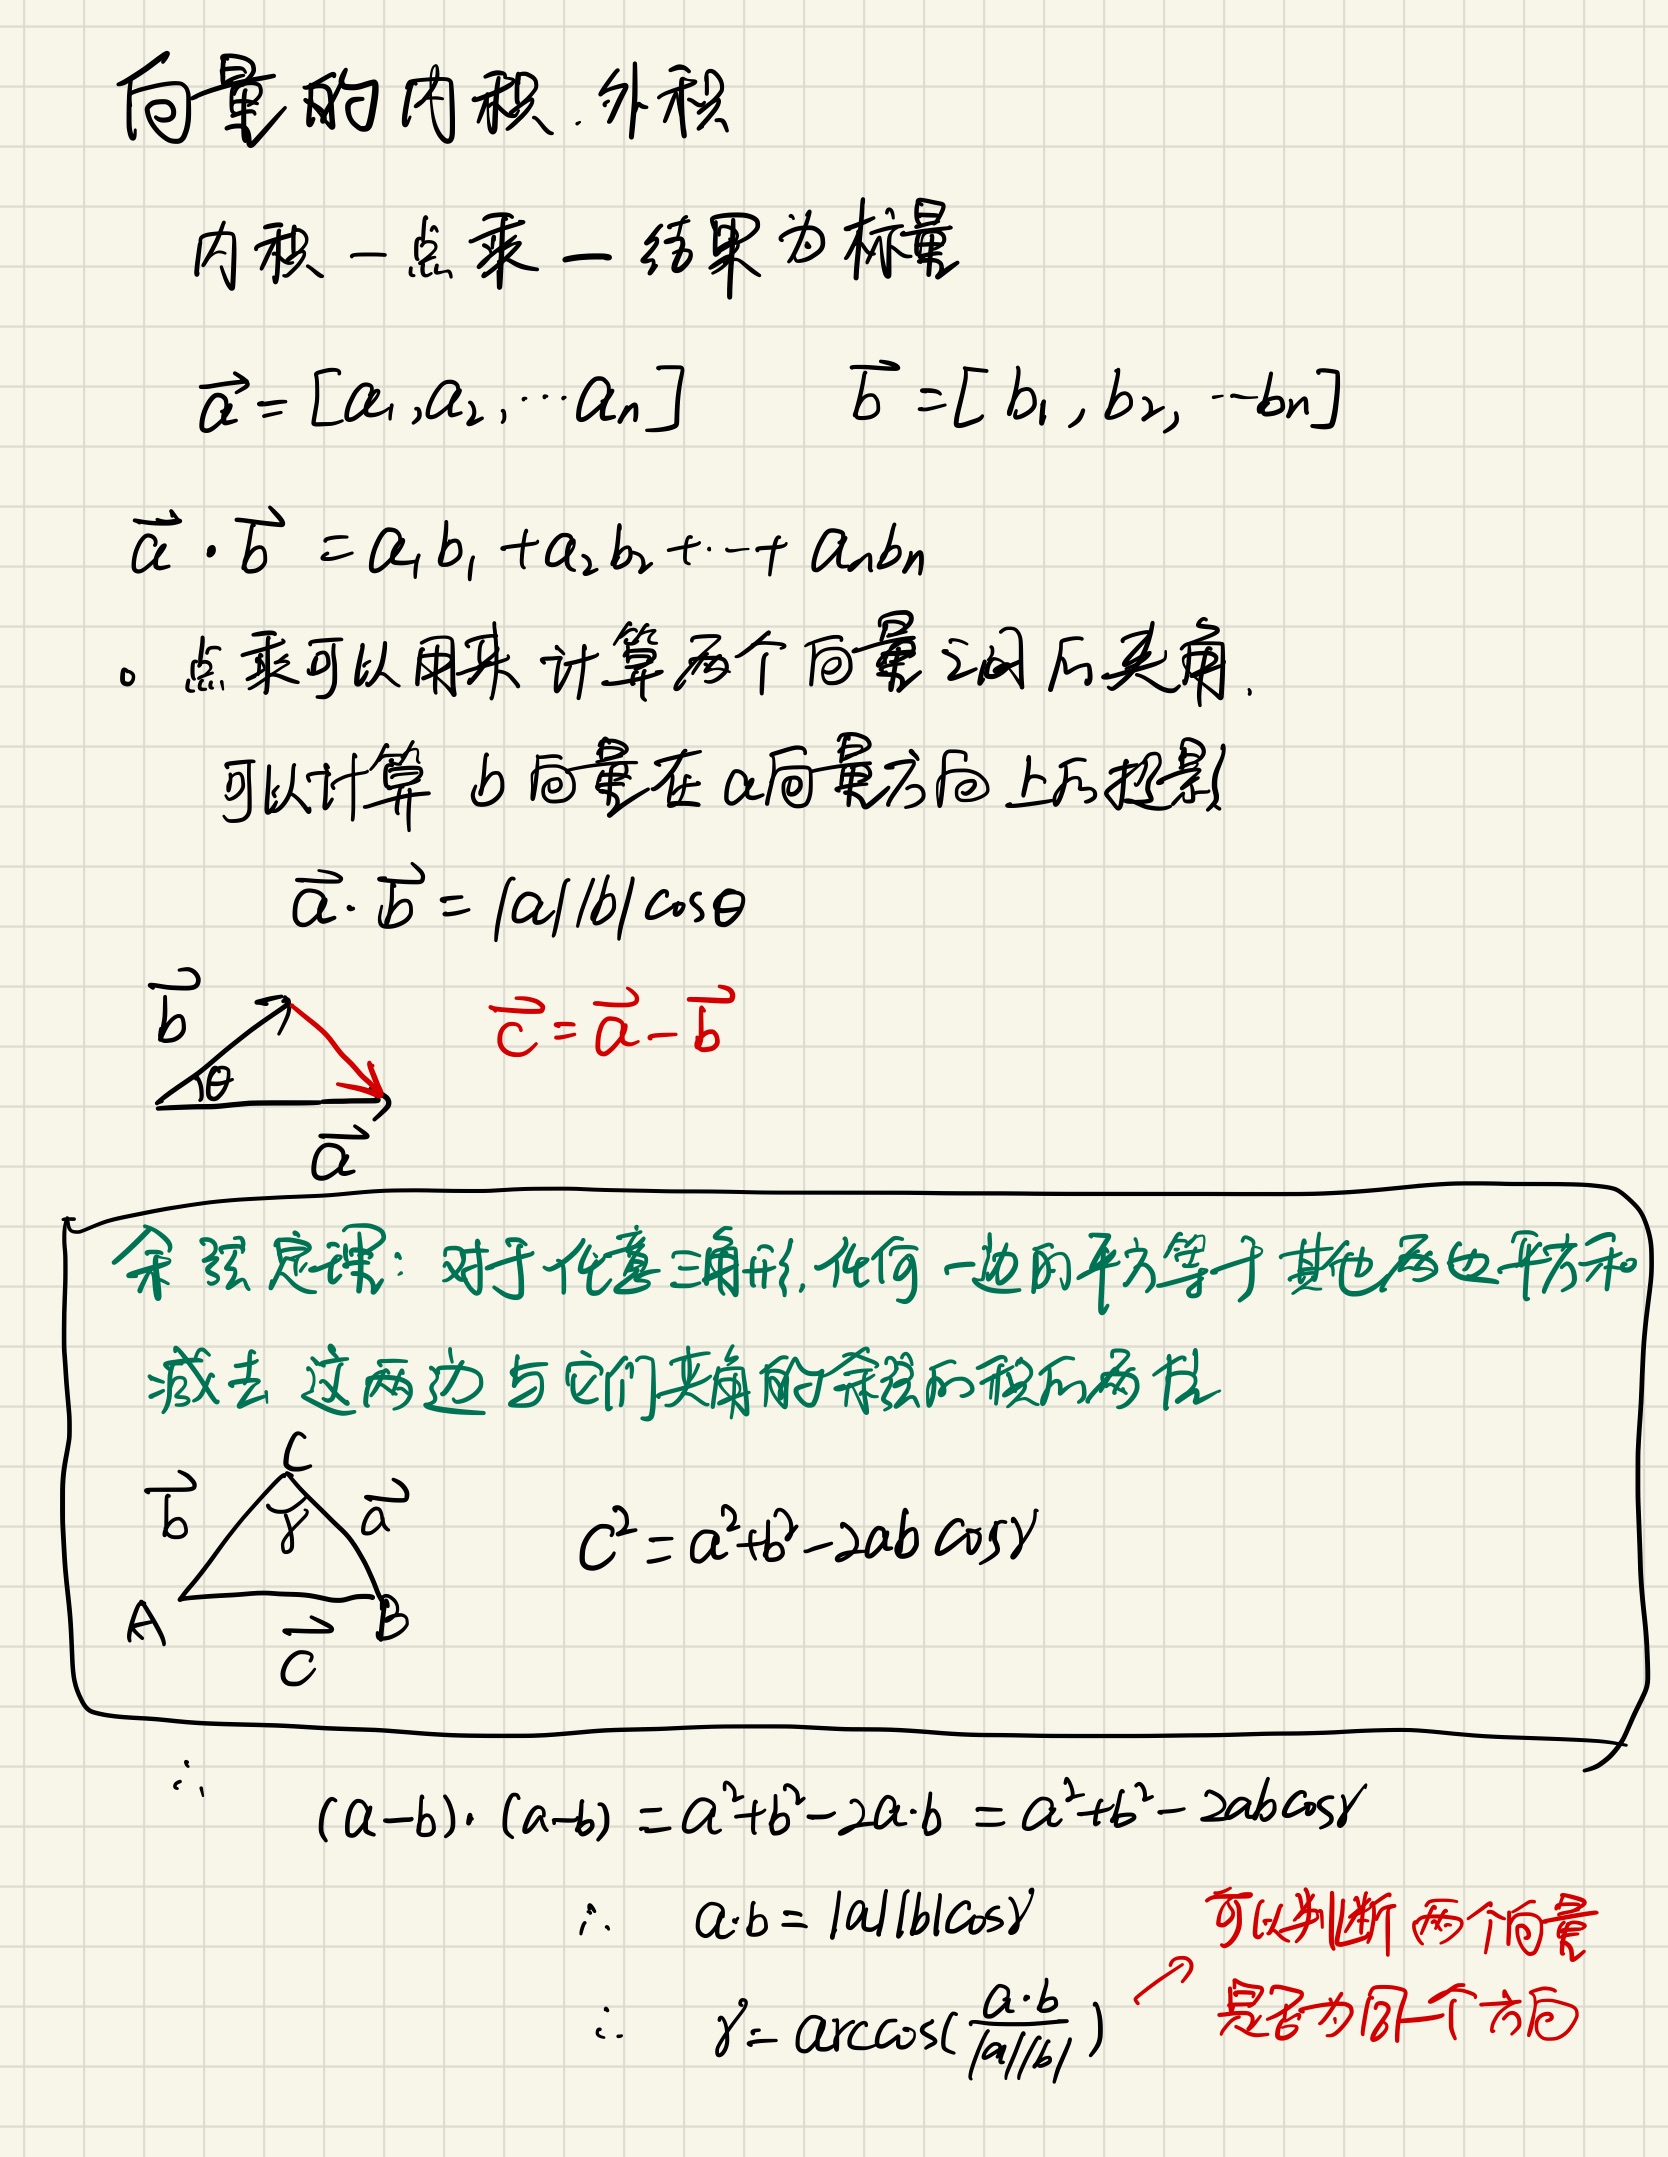 向量的内积.外积
内积—点乘—结果为标量
a⃗ = [a₁,a₂,…aₙ]    b⃗ = [b₁,b₂,…bₙ]
a⃗·b⃗ = a₁b₁+a₂b₂+…+aₙbₙ
。点乘可以用来计算两个向量之间的夹角.
可以计算 b向量在a向量方向上的投影
a⃗·b⃗ = |a||b|cosθ
b⃗
θ
a⃗
c⃗ = a⃗ - b⃗
余弦定理:对于任意三角形,任何一边的平方等于其他两边平方和
减去这两边与它们夹角的余弦的积的两倍
C
b⃗ γ a⃗
A B
c⃗
c² = a²+b²-2ab cosγ
∴ (a-b)·(a-b) = a²+b²-2a·b = a²+b²-2abcosγ
∴ a·b = |a||b|cosγ
∴ γ = arccos(a·b/|a||b|)
可以判断两个向量
是否为同一个方向